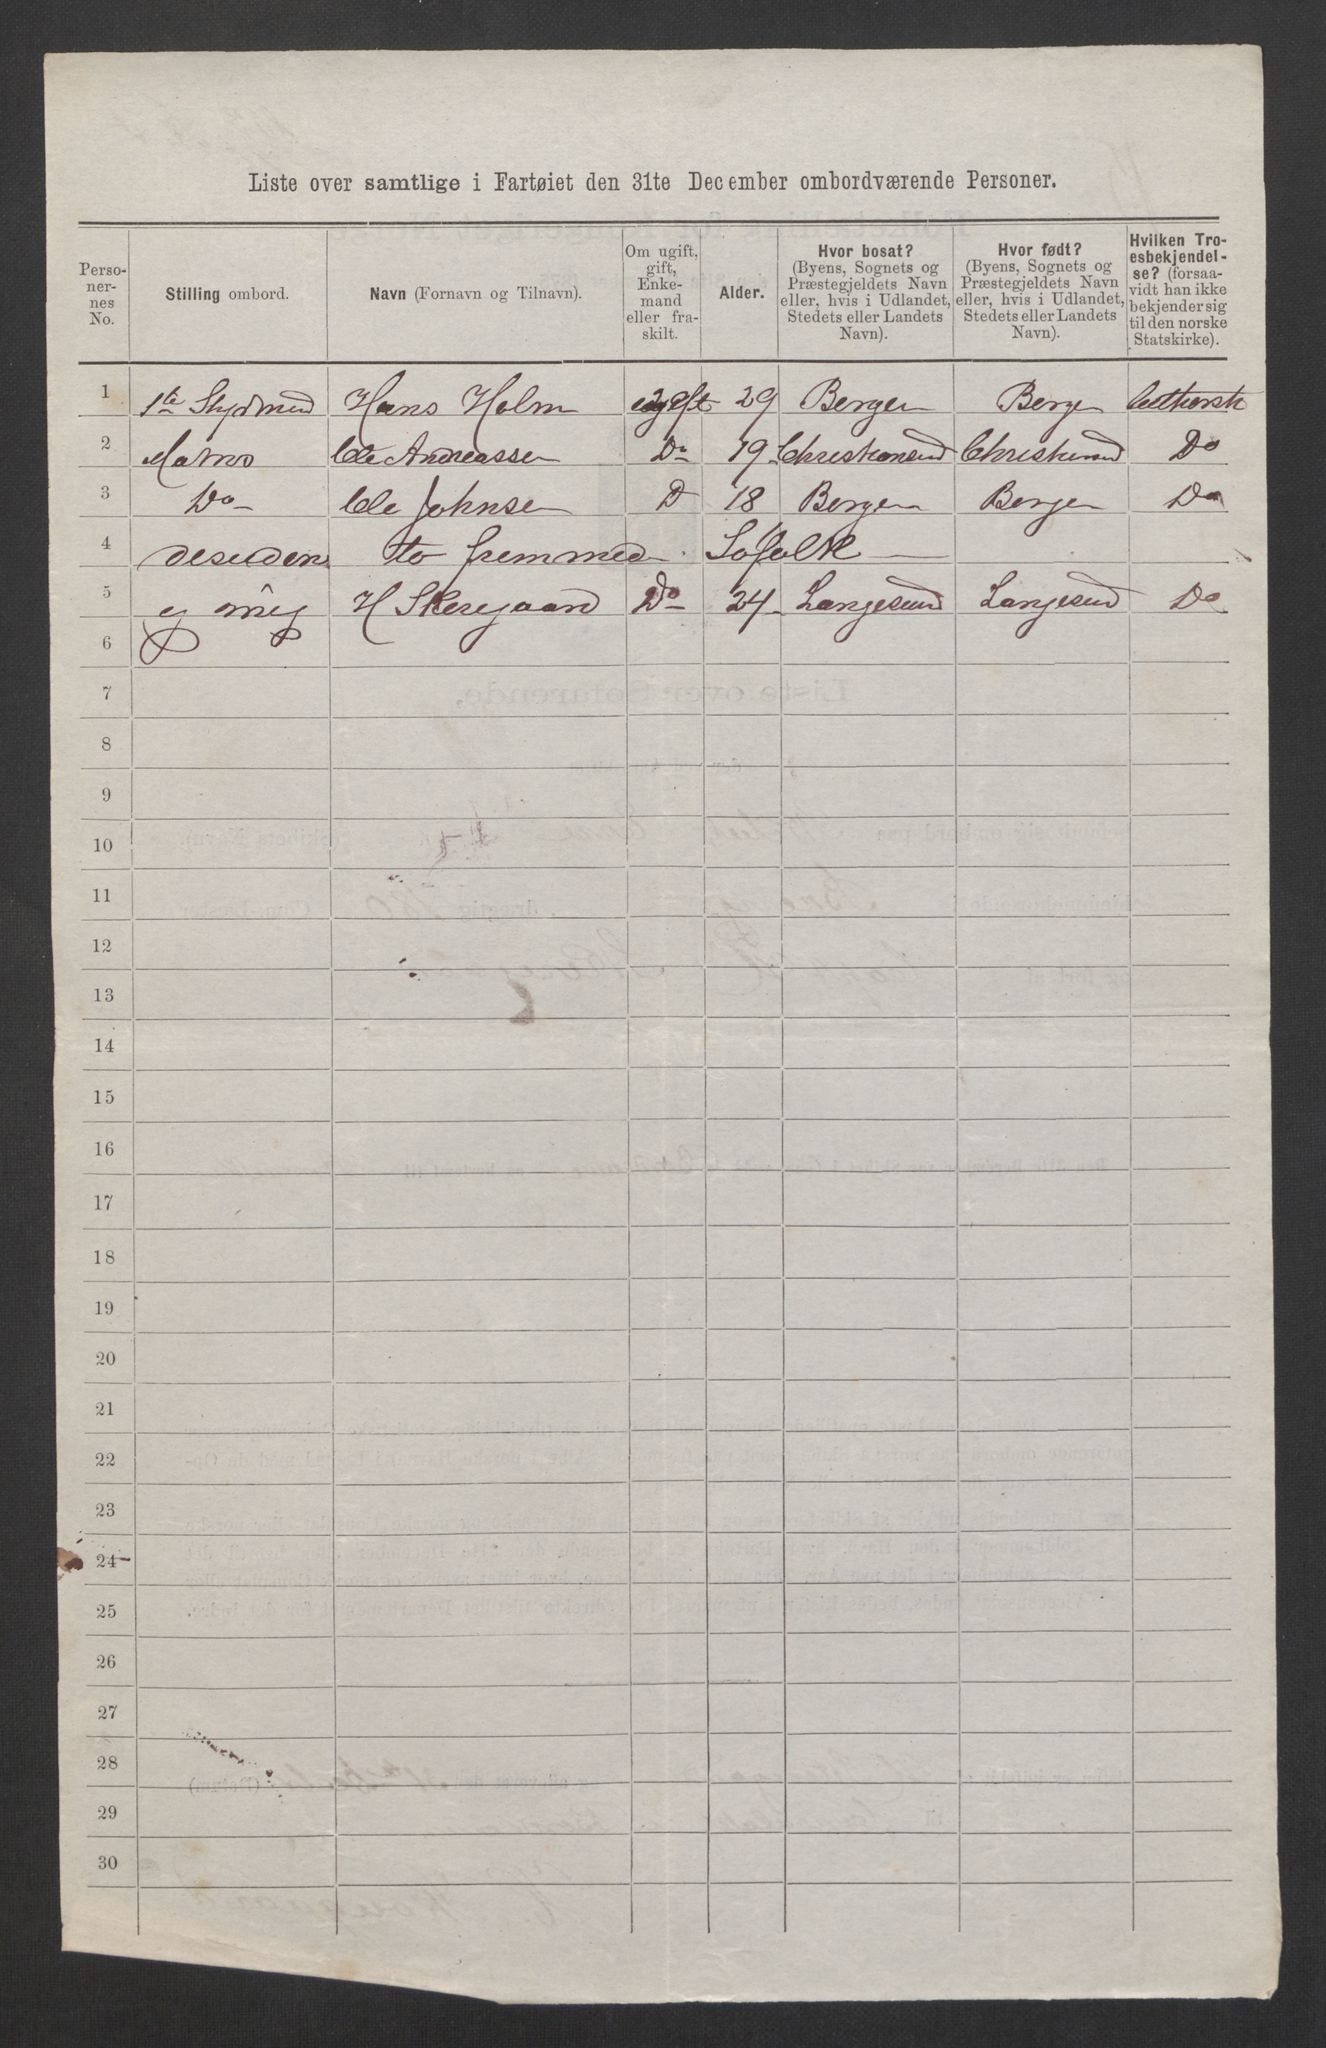 Liste over samtlige i Fartøiet den 31te December ombordværende Personer.
Perso-
ner-
nes
No.
Stilling ombord.
Navn (Fornavn og Tilnavn).
Om ugift,
gift,
Enke-
mand
eller fra-
skilt.
Alder.
Hvor bosat?
(Byens, Sognets og
Præstegjeldets Navn
eller, hvis i Udlandet,
Stedets eller Landets
Navn).
Hvor født?
(Byens, Sognets og
Præstegjeldets Navn
eller, hvis i Udlandet,
Stedets eller Landets
Navn).
Hvilken Tro-
esbekjendel-
se? (forsaa-
vidt han ikke
bekjender sig
til den norske
Statskirke).
1 1ste Hans Holm ugift 29 Bergen Bergen Luthersk
2 Matros Ole Andreassen Do 19 Christiansund Christiansund Do
3 Do Ole Johnsen D 18 Bergen Bergen Do
4 desuden to fremmed Søfolk
5 og mig H Skeregaard Do 24 Langesund Langesund Do
6
7
8
9
10
11
12
13
14
15
16
17
18
19
20
21
22
23
24
25
26
27
28
29
30